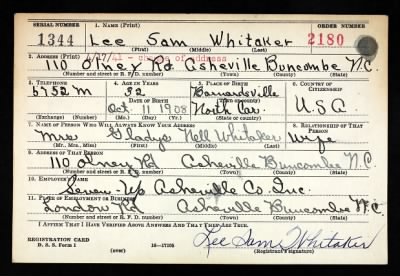 SERIAL NUMBER 1. NAME (Print) ORDER NUMBER
1344 Lee Sam Whitaker 2180
(First) (Middle) (Last)
2. ADDRESS (Print) 6/27/41 - change of address
110 Olney Rd Asheville Buncombe N.C.
(Number and street or R. F. D. number) (Town) (County) (State)
3. TELEPHONE 4. AGE IN YEARS 5. PLACE OF BIRTH 6. COUNTRY OF CITIZENSHIP
5752 M 32 Barnardsville
DATE OF BIRTH (Town or county)
Oct. 11 1908 North Car. U.S.A
(Exchange) (Number) (Mo.) (Day) (Yr.) (State or country)
7. NAME OF PERSON WHO WILL ALWAYS KNOW YOUR ADDRESS 8. RELATIONSHIP OF THAT PERSON
Mrs Gladys Nell Whitaker Wife
(Mr., Mrs., Miss) (First) (Middle) (Last)
9. ADDRESS OF THAT PERSON
110 Olney Rd Asheville Buncombe N.C.
(Number and street or R. F. D. number) (Town) (County) (State)
10. EMPLOYER'S NAME
Seven-Up Asheville Co. Inc.
11. PLACE OF EMPLOYMENT OR BUSINESS
London Rd Asheville Buncombe N.C.
(Number and street or R. F. D. number) (Town) (County) (State)
I AFFIRM THAT I HAVE VERIFIED ABOVE ANSWERS AND THAT THEY ARE TRUE.
REGISTRATION CARD
D. S. S. Form 1 (over) 16-17105 Lee Sam Whitaker
(Registrant's signature)